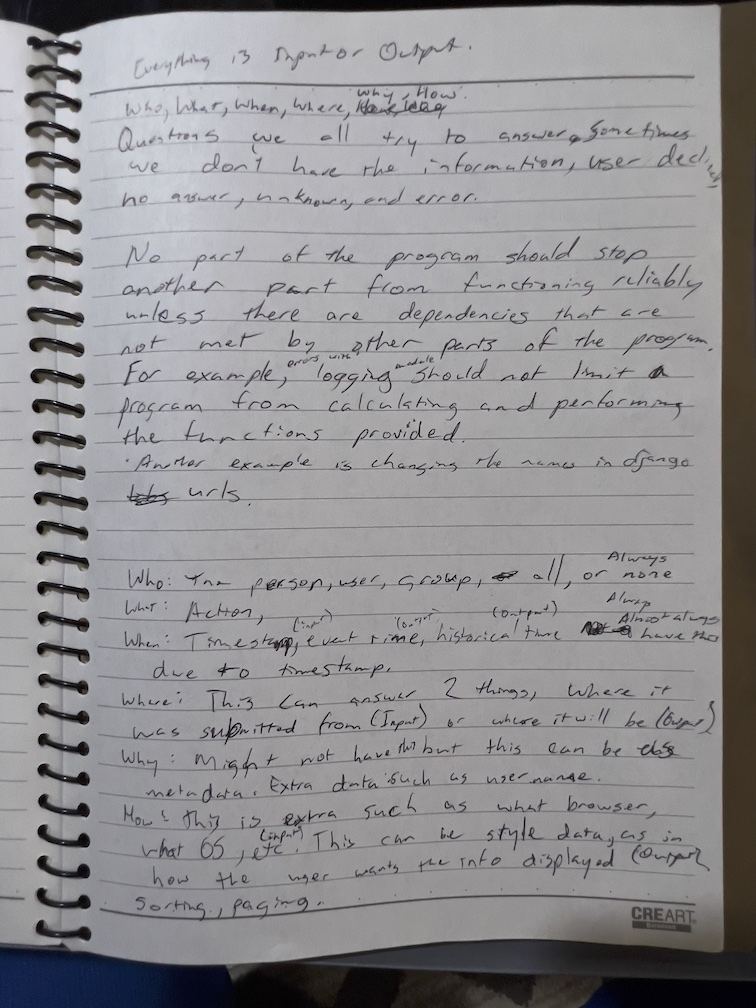 Everything is Input or Output.
why, How.
Who, What, When, Where,
Questions we all try to answer. Sometimes
we don't have the information, user declines,
no answer, unknown, and error.
No part of the program should stop
another part from functioning reliably
unless there are dependencies that are
not met by other parts of the program.
For example, errors with logging module should not limit a
program from calculating and performing
the functions provided.
· Another example is changing the names in django
urls.
Who: The person, user, group, all, or none Always
What: Action, Always
When: Timestamp, (input) event time, (output) historical time (output) Almost always have this
due to timestamp.
Where: This can answer 2 things, Where it
was submitted from (Input) or where it will be (Output)
Why: Might not have this but this can be
metadata. Extra data such as username.
How: this is extra such as what browser,
what OS, etc. (input) This can be style data, as in
how the user wants the info displayed (Output)
Sorting, paging.
CREART